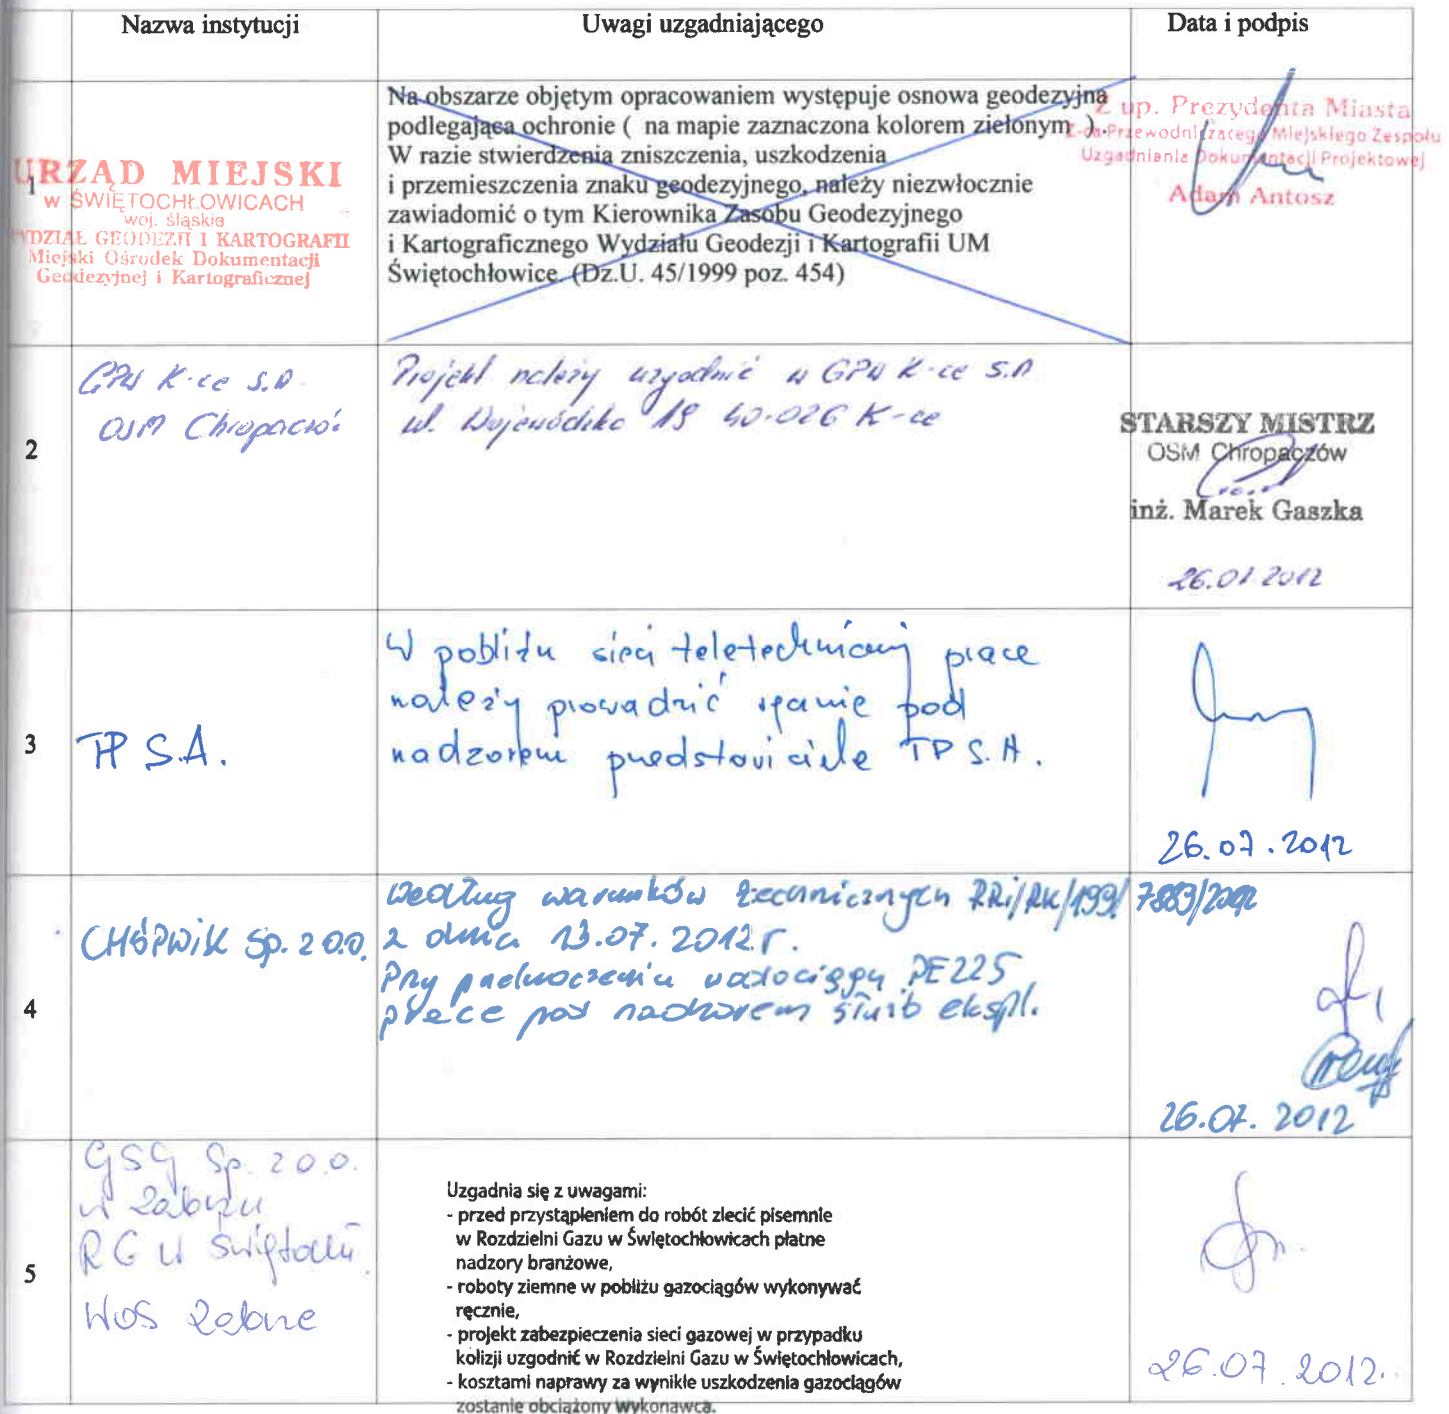 Nazwa instytucji
Uwagi uzgadniającego
Data i podpis
1
URZĄD MIEJSKI
w ŚWIĘTOCHŁOWICACH
woj. śląskie
WYDZIAŁ GEODEZJI I KARTOGRAFII
Miejski Ośrodek Dokumentacji
Geodezyjnej i Kartograficznej
Na obszarze objętym opracowaniem występuje osnowa geodezyjna
podlegająca ochronie ( na mapie zaznaczona kolorem zielonym ).
W razie stwierdzenia zniszczenia, uszkodzenia
i przemieszczenia znaku geodezyjnego, należy niezwłocznie
zawiadomić o tym Kierownika Zasobu Geodezyjnego
i Kartograficznego Wydziału Geodezji i Kartografii UM
Świętochłowice. (Dz.U. 45/1999 poz. 454)
Z up. Prezydenta Miasta
Z-ca Przewodniczącego Miejskiego Zespołu
Uzgadniania Dokumentacji Projektowej
Adam Antosz
2
GPW K-ce S.A.
OSM Chropaczów
Projekt należy uzgodnić w GPW K-ce S.A
ul. Wojewódzka 19 40-026 K-ce
STARSZY MISTRZ
OSM Chropaczów
inż. Marek Gaszka
26.07.2012
3
TP S.A.
W pobliżu sieci teletechnicznej prace
należy prowadzić ręcznie pod
nadzorem przedstawiciela TP S.A.
26.07.2012
4
CHŚPWiK Sp. z o.o.
według warunków technicznych RRi/RK/199/7883/2012
z dnia 13.07.2012r.
Przy przekroczeniu wodociągu PE225
prace pod nadzorem służb ekspl.
26.07.2012
5
GSG Sp. z o.o.
w Zabrzu
RG w Świętochł.
WOS Zabrze
Uzgadnia się z uwagami:
- przed przystąpieniem do robót zlecić pisemnie
w Rozdzielni Gazu w Świętochłowicach płatne
nadzory branżowe,
- roboty ziemne w pobliżu gazociągów wykonywać
ręcznie,
- projekt zabezpieczenia sieci gazowej w przypadku
kolizji uzgodnić w Rozdzielni Gazu w Świętochłowicach,
- kosztami naprawy za wynikłe uszkodzenia gazociągów
zostanie obciążony wykonawca.
26.07.2012.